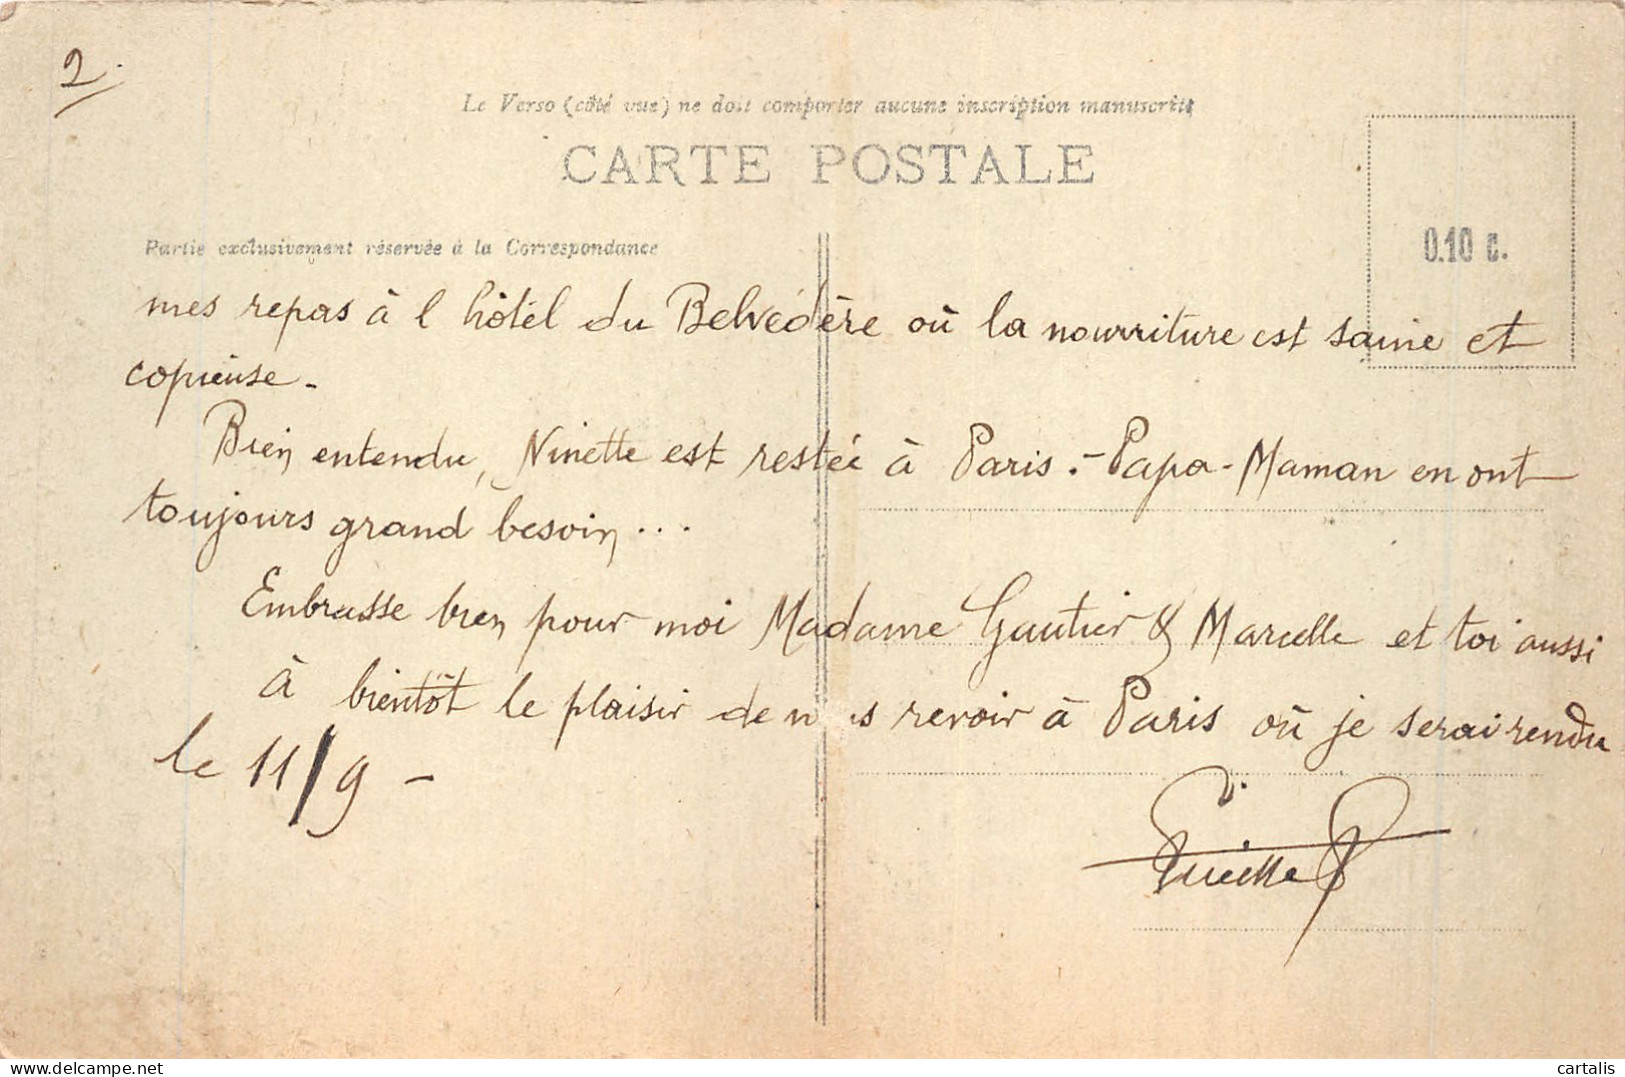 2.
Le Verso (côté vue) ne doit comporter aucune inscription manuscrite
CARTE POSTALE
Partie exclusivement réservée à la Correspondance
0.10 c.
mes repas à l'hôtel du Belvédère où la nourriture est saine et
copieuse -
Bien entendu, Ninette est restée à Paris. - Papa - Maman en ont
toujours grand besoin ...
Embrasse bien pour moi Madame Gautier & Marcelle et toi aussi
à bientôt le plaisir de nous revoir à Paris où je serai rendu
le 11/9 -
cartalis